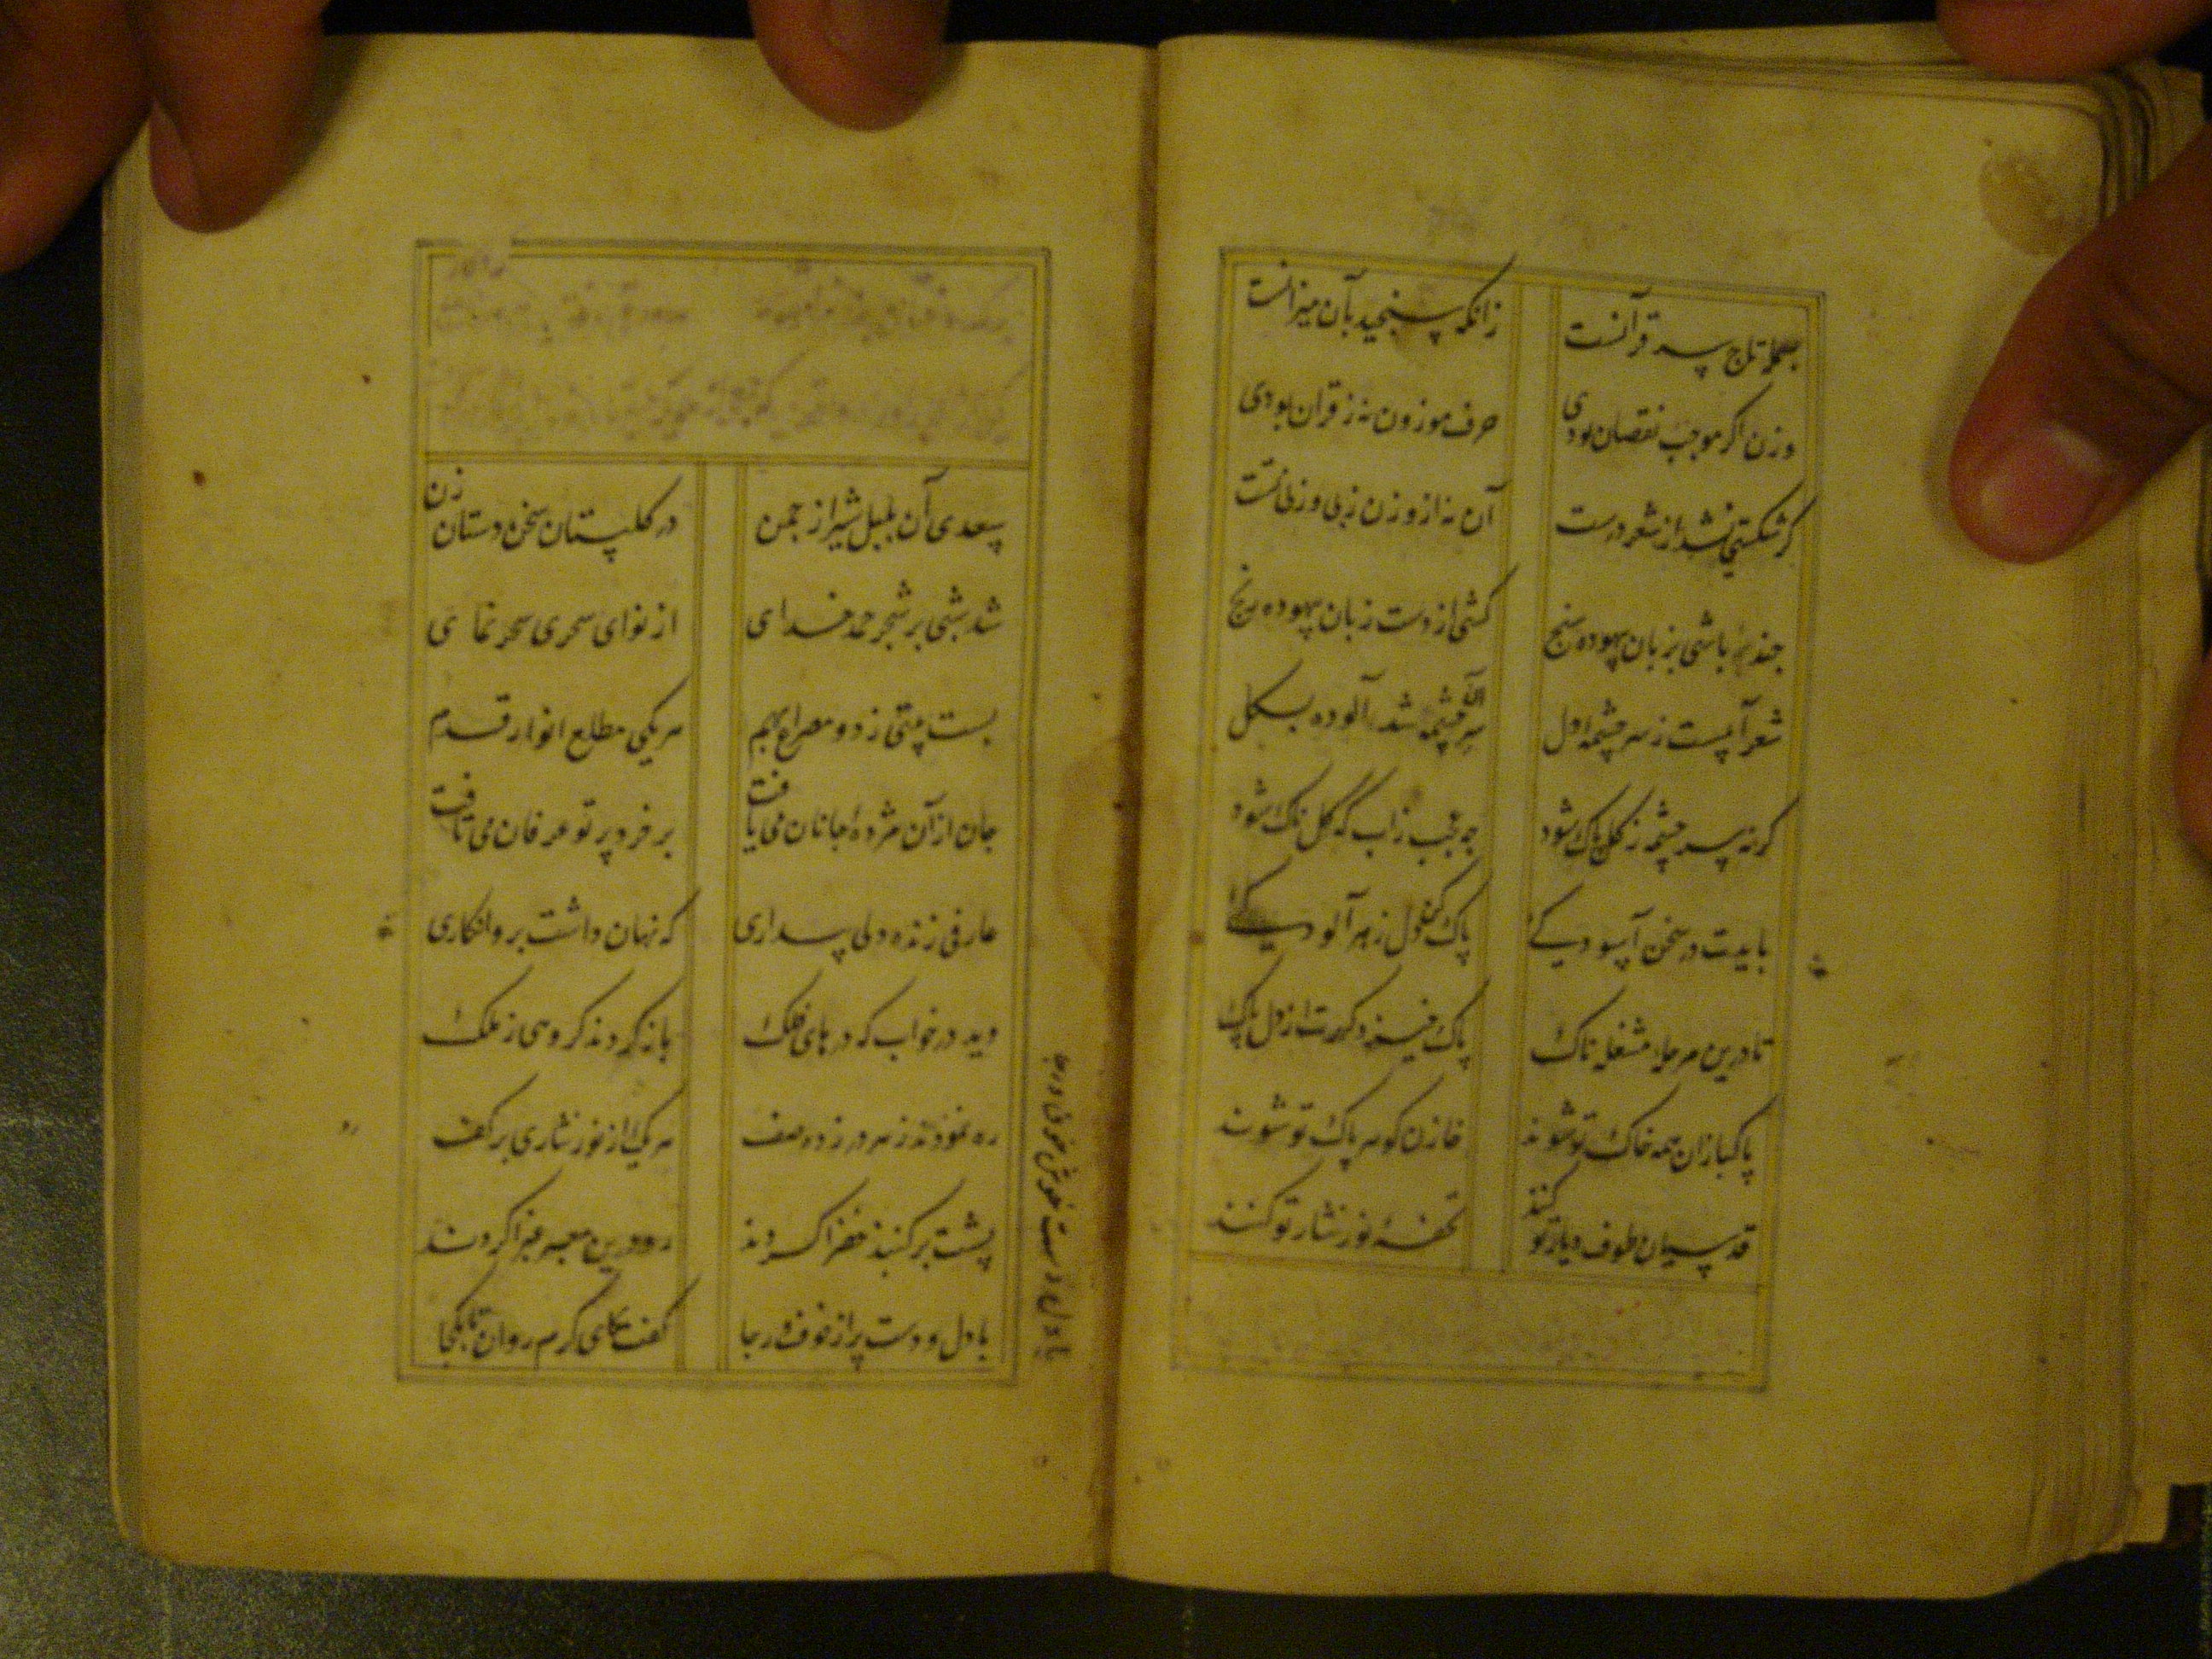 بسمله تاج سر قرآنست زانکه سنجیده بآن میزانست
وزن اگر موجب نقصان بودی حرف موزون نه ز قرآن بودی
گر شکستی نشد از شعر درست آن نه از وزن
چند باشی بزبان بیهوده سنج کشی از دست زبان بیهوده رنج
شعر آبیست ز سرچشمه دل سرچشمه شد آلوده بگل
گر نه سرچشمه ز گل پاک شود چه عجب زاب که گل ناک شود
بایدت در سخن آسودگی پاک کن دل ز هر آلودگی
تا درین مرحله مشغله ناک پاک خیزد گهرت از دل پاک
پاکبازان همه خاک تو شوند خازن گوهر پاک تو شوند
قدسیان طوف دیار تو کنند تحفه نور نثار تو کنند
سعدی آن بلبل شیراز چمن در گلستان سخن دستان زن
شد شبی بر شجر حمد خدای از نوای سحری سحر نمای
بست بیتی ز دو مصراع بهم هر یکی مطلع انوار قدم
جان از آن مژده جانان می یافت بر خرد پرتو عرفان می تافت
عارفی زنده دلی بیداری که نهان داشت برو انکاری
دید در خواب که درهای فلک باز کردند گروهی ز ملک
رو نمودند ز هر در زده صف هر یک از نور نثاری بر کف
پشت بر گنبد خضرا کردند رو درین معبر غبرا کردند
با دل و دست پر از خوف و رجا گفت کای گرم روان تا بکجا
با دل دست